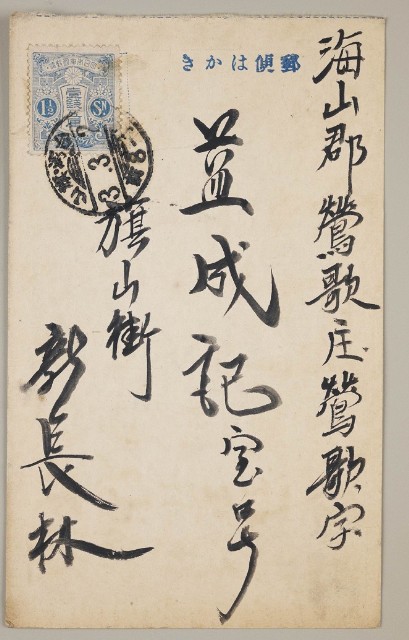 海山郡鶯歌庄鶯歌字
益成記宝号
旗山街
新長林
郵便はかき
1½ Sn
3 3